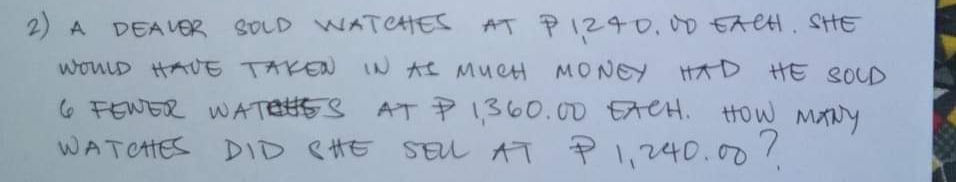 2) A DEALER SOLD WATCHES AT ₱ 1,240.00 EACH. SHE
WOULD HAVE TAKEN IN AS MUCH MONEY HAD HE SOLD
6 FEWER WATCHES AT ₱ 1,360.00 EACH. HOW MANY
WATCHES DID SHE SELL AT ₱ 1,240.00?